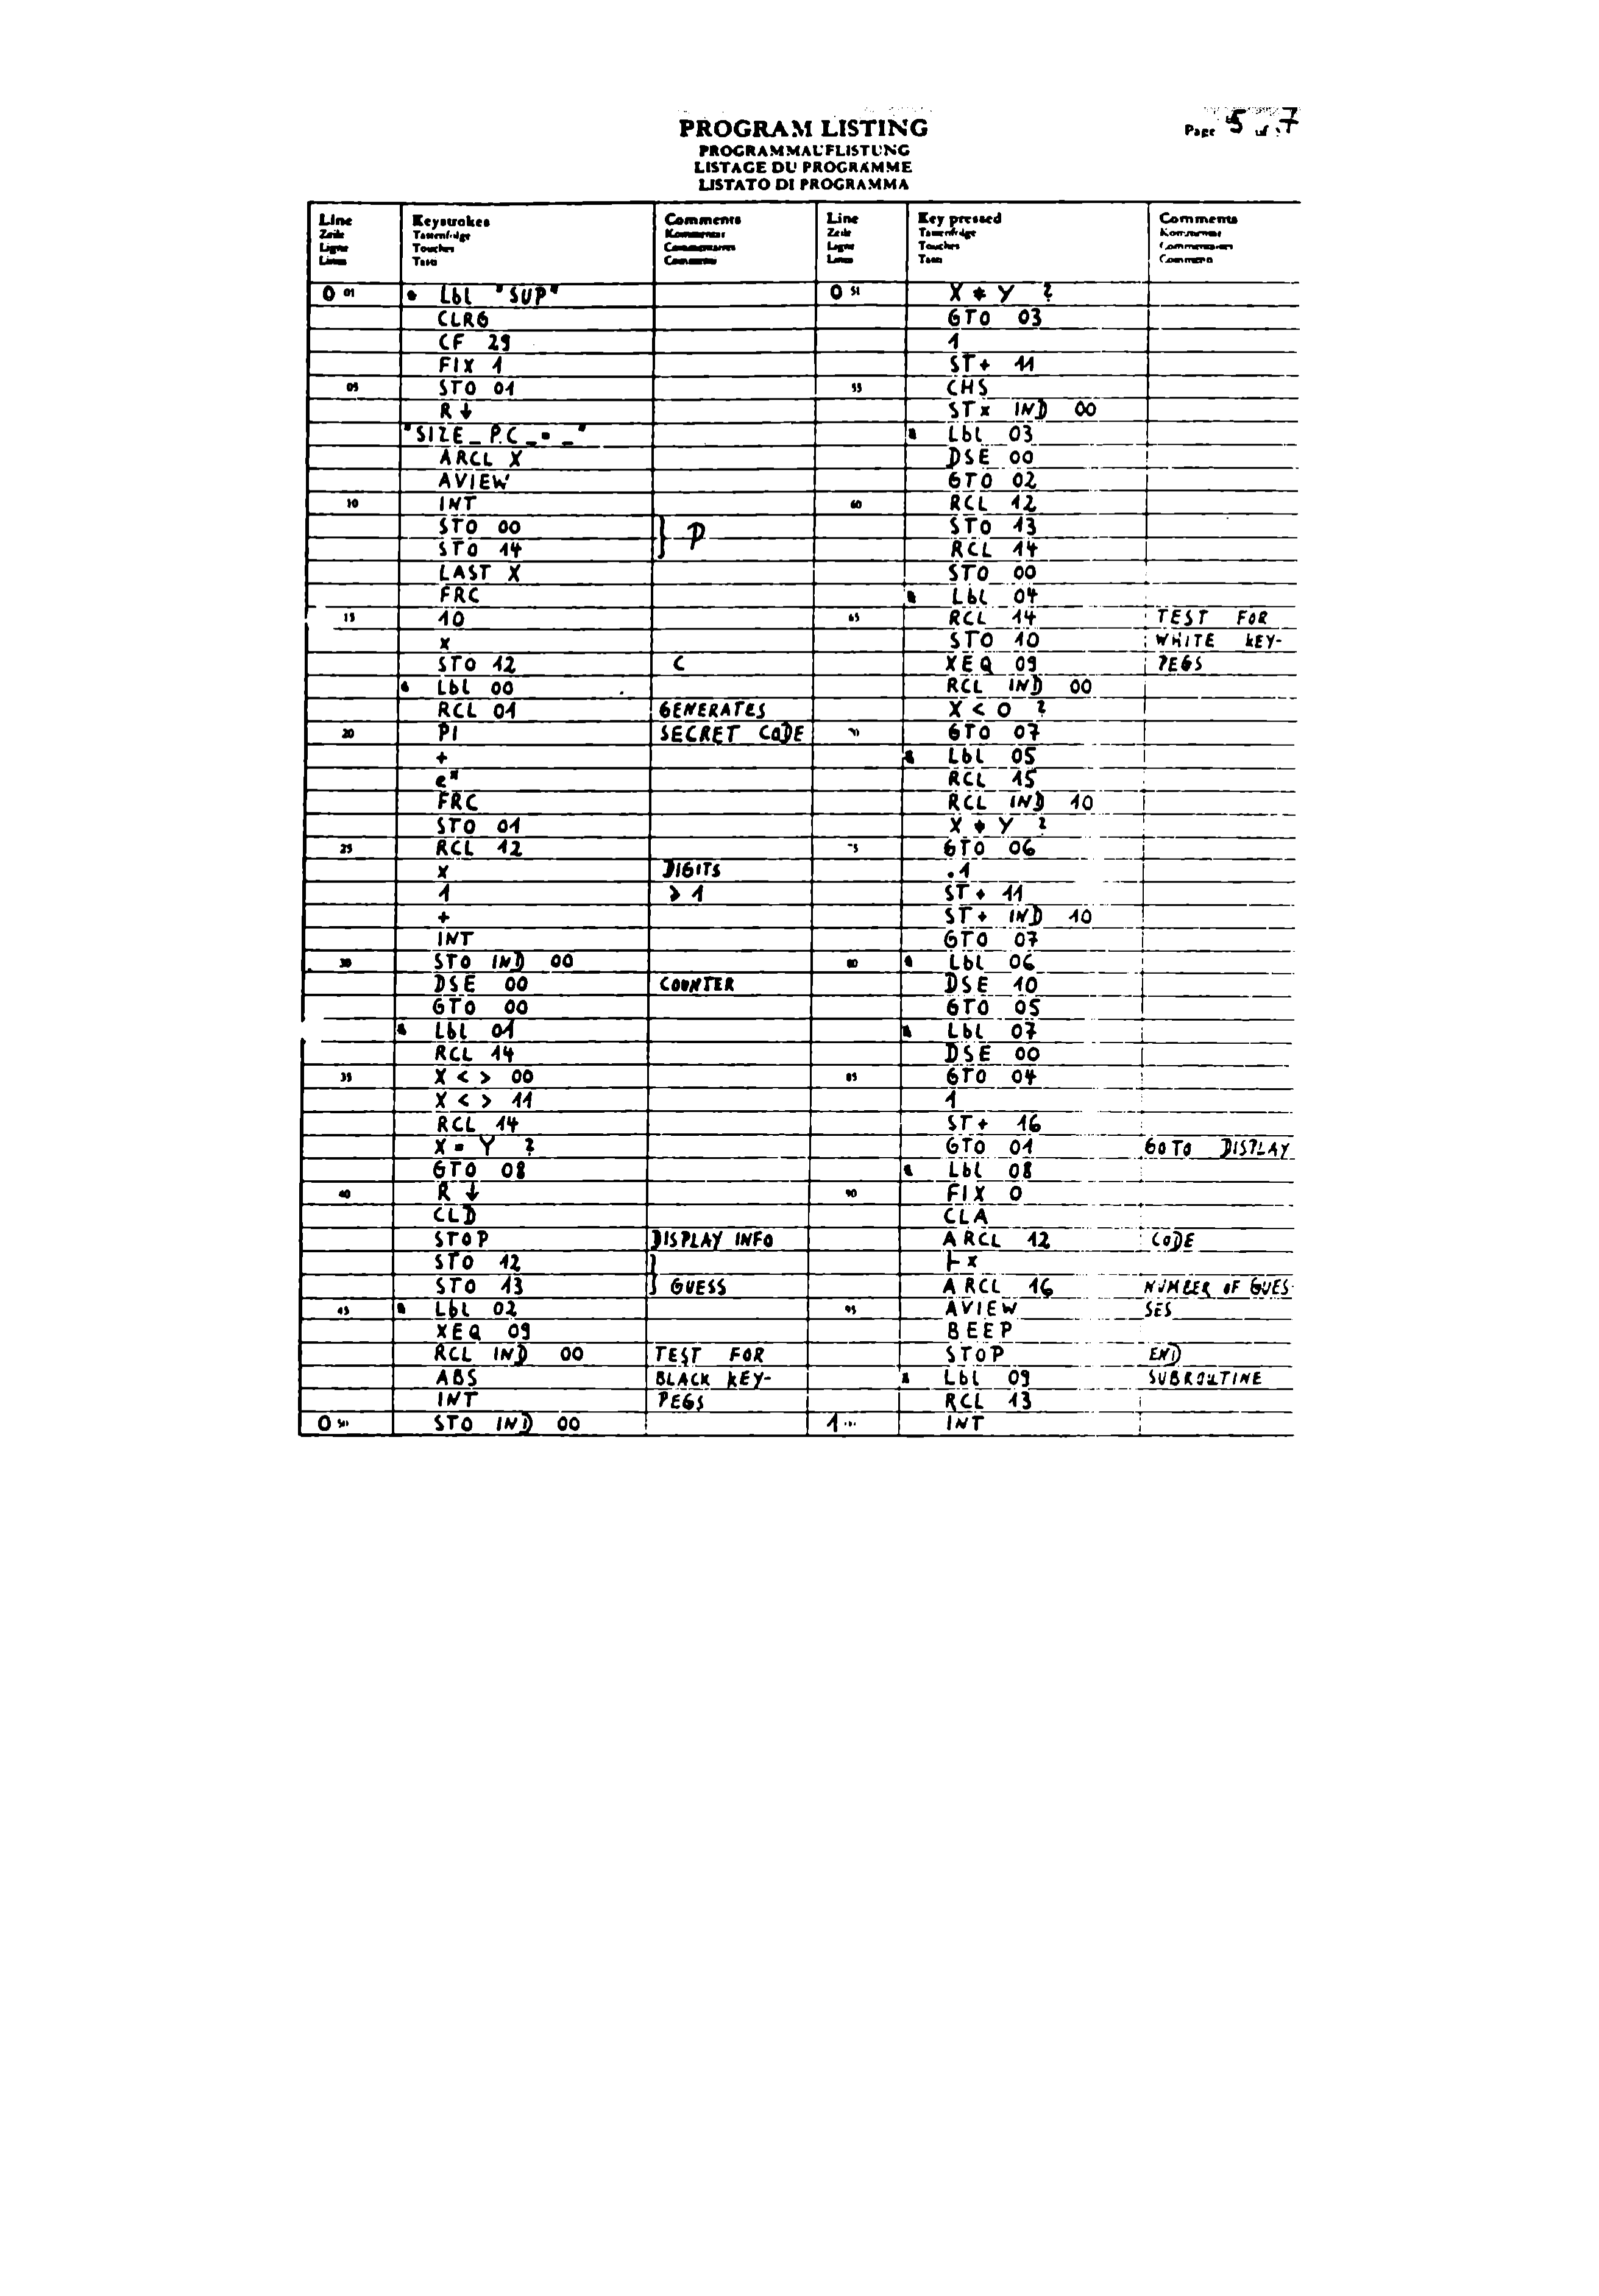 PROGRAM LISTING
PROGRAMMAUFLISTUNG
LISTAGE DU PROGRAMME
LISTATO DI PROGRAMMA
Page 5 of 7
Line Keystrokes Comments Line Key pressed Comments
Zeile Tastenfolge Kommentar Zeile Tastenfolge Kommentar
Ligne Touches Commentaires Ligne Touches Commentaires
Linea Tasti Commento Linea Tasti Commento
0 01 Lbl "SUP" 0 51 X ≠ Y ?
CLRG GTO 03
CF 29 1
FIX 1 ST+ 11
05 STO 01 55 CHS
R↓ ST x IND 00
"SIZE_P.C_=_" Lbl 03
ARCL X DSE 00
AVIEW GTO 02
10 INT 60 RCL 12
STO 00 } P STO 13
STO 14 RCL 14
LAST X STO 00
FRC Lbl 04
15 10 65 RCL 14 TEST FOR
x STO 10 WHITE KEY-
STO 12 C XEQ 09 PEGS
Lbl 00 RCL IND 00
RCL 01 GENERATES X < 0 ?
20 PI SECRET CODE 70 GTO 07
+ Lbl 05
e^x RCL 15
FRC RCL IND 10
STO 01 X ≠ Y ?
25 RCL 12 75 GTO 06
x DIGITS .1
1 > 1 ST + 11
+ ST+ IND 10
INT GTO 07
30 STO IND 00 80 Lbl 06
DSE 00 COUNTER DSE 10
GTO 00 GTO 05
Lbl 01 Lbl 07
RCL 14 DSE 00
35 X < > 00 85 GTO 04
X < > 11 1
RCL 14 ST+ 16
X = Y ? GTO 01 GOTO DISPLAY
GTO 08 Lbl 08
40 R ↓ 90 FIX 0
CLD CLA
STOP DISPLAY INFO ARCL 12 CODE
STO 12 } ⊢ x
STO 13 GUESS ARCL 16 NUMBER OF GUES-
45 Lbl 02 95 AVIEW SES
XEQ 09 BEEP
RCL IND 00 TEST FOR STOP END
ABS BLACK KEY- Lbl 09 SUBROUTINE
INT PEGS RCL 13
0 50 STO IND 00 1 00 INT